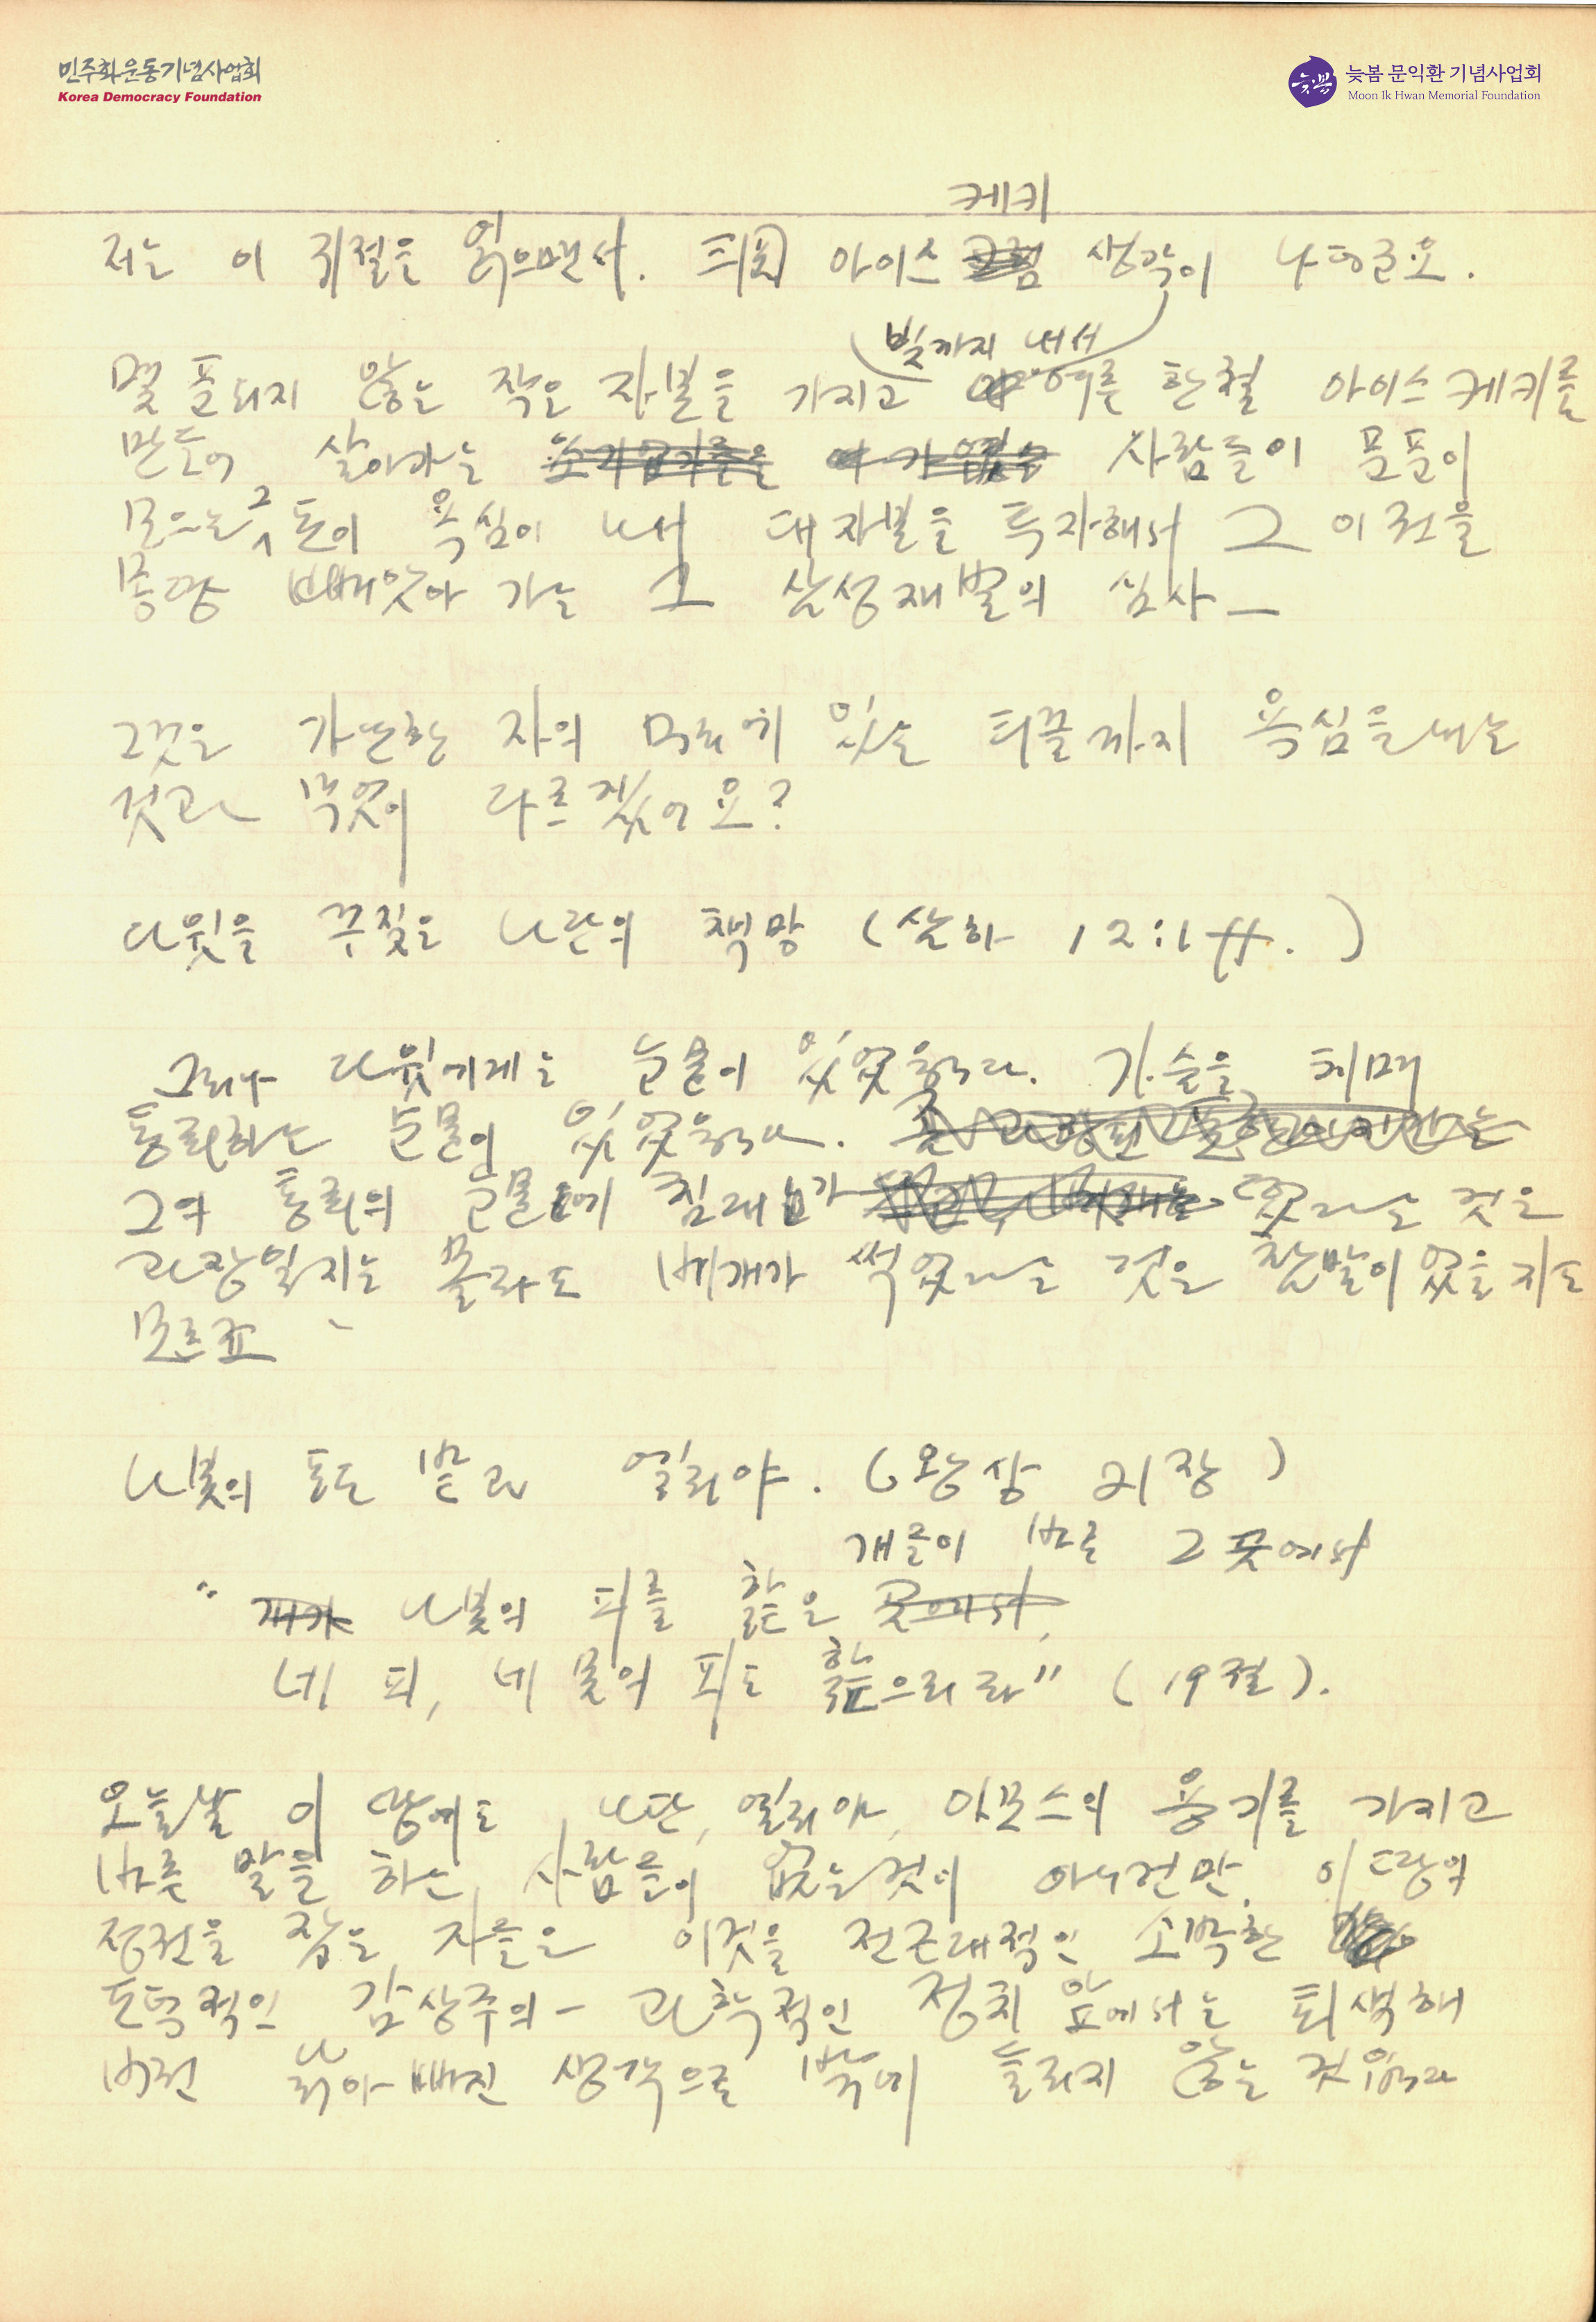 민주화운동기념사업회
Korea Democracy Foundation
늦봄
늦봄 문익환 기념사업회
Moon Ik Hwan Memorial Foundation
케키
저는 이 귀절을 읽으면서. 아이스 생각이 나더군요.
빚까지 내서
몇 푼 되지 않는 작은 자본을 가지고 여름 한철 아이스케키를
만들어 살아가는 사람들이 푼푼이
모으는 그 돈이 욕심이 나서 대자본을 투자해서 그 이권을
몽땅 빼앗아 가는 그 삼성재벌의 심사 —
그것은 가난한 자의 머리에 있는 티끌까지 욕심을 내는
것과 무엇이 다르겠어요?
다윗을 꾸짖은 나단의 책망 (삼하 12:1 ff.)
그러나 다윗에게는 눈물이 있었읍니다. 가슴을 치며
통회하는 눈물이 있었읍니다.
그의 통회의 눈물에 침대가 떴다는 것은
과장일지는 몰라도 베개가 썩었다는 것은 참말이었을지도
모르죠
나봇의 포도밭과 엘리야. (왕상 21장)
개들이 바로 그 곳에서
" 개가 나봇의 피를 핥은 곳에서,
네 피, 네 몸의 피도 핥으리라" (19절).
오늘날 이 땅에도 나단, 엘리야, 아모스의 용기를 가지고
바른 말을 하는 사람들이 없는 것이 아니건만, 이 땅의
정권을 잡은 자들은 이것을 전근대적인 소박한
도덕적인 감상주의 - 과학적인 정치 앞에서는 퇴색해
버린 낡아빠진 생각으로 밖에 들리지 않는 것입니다